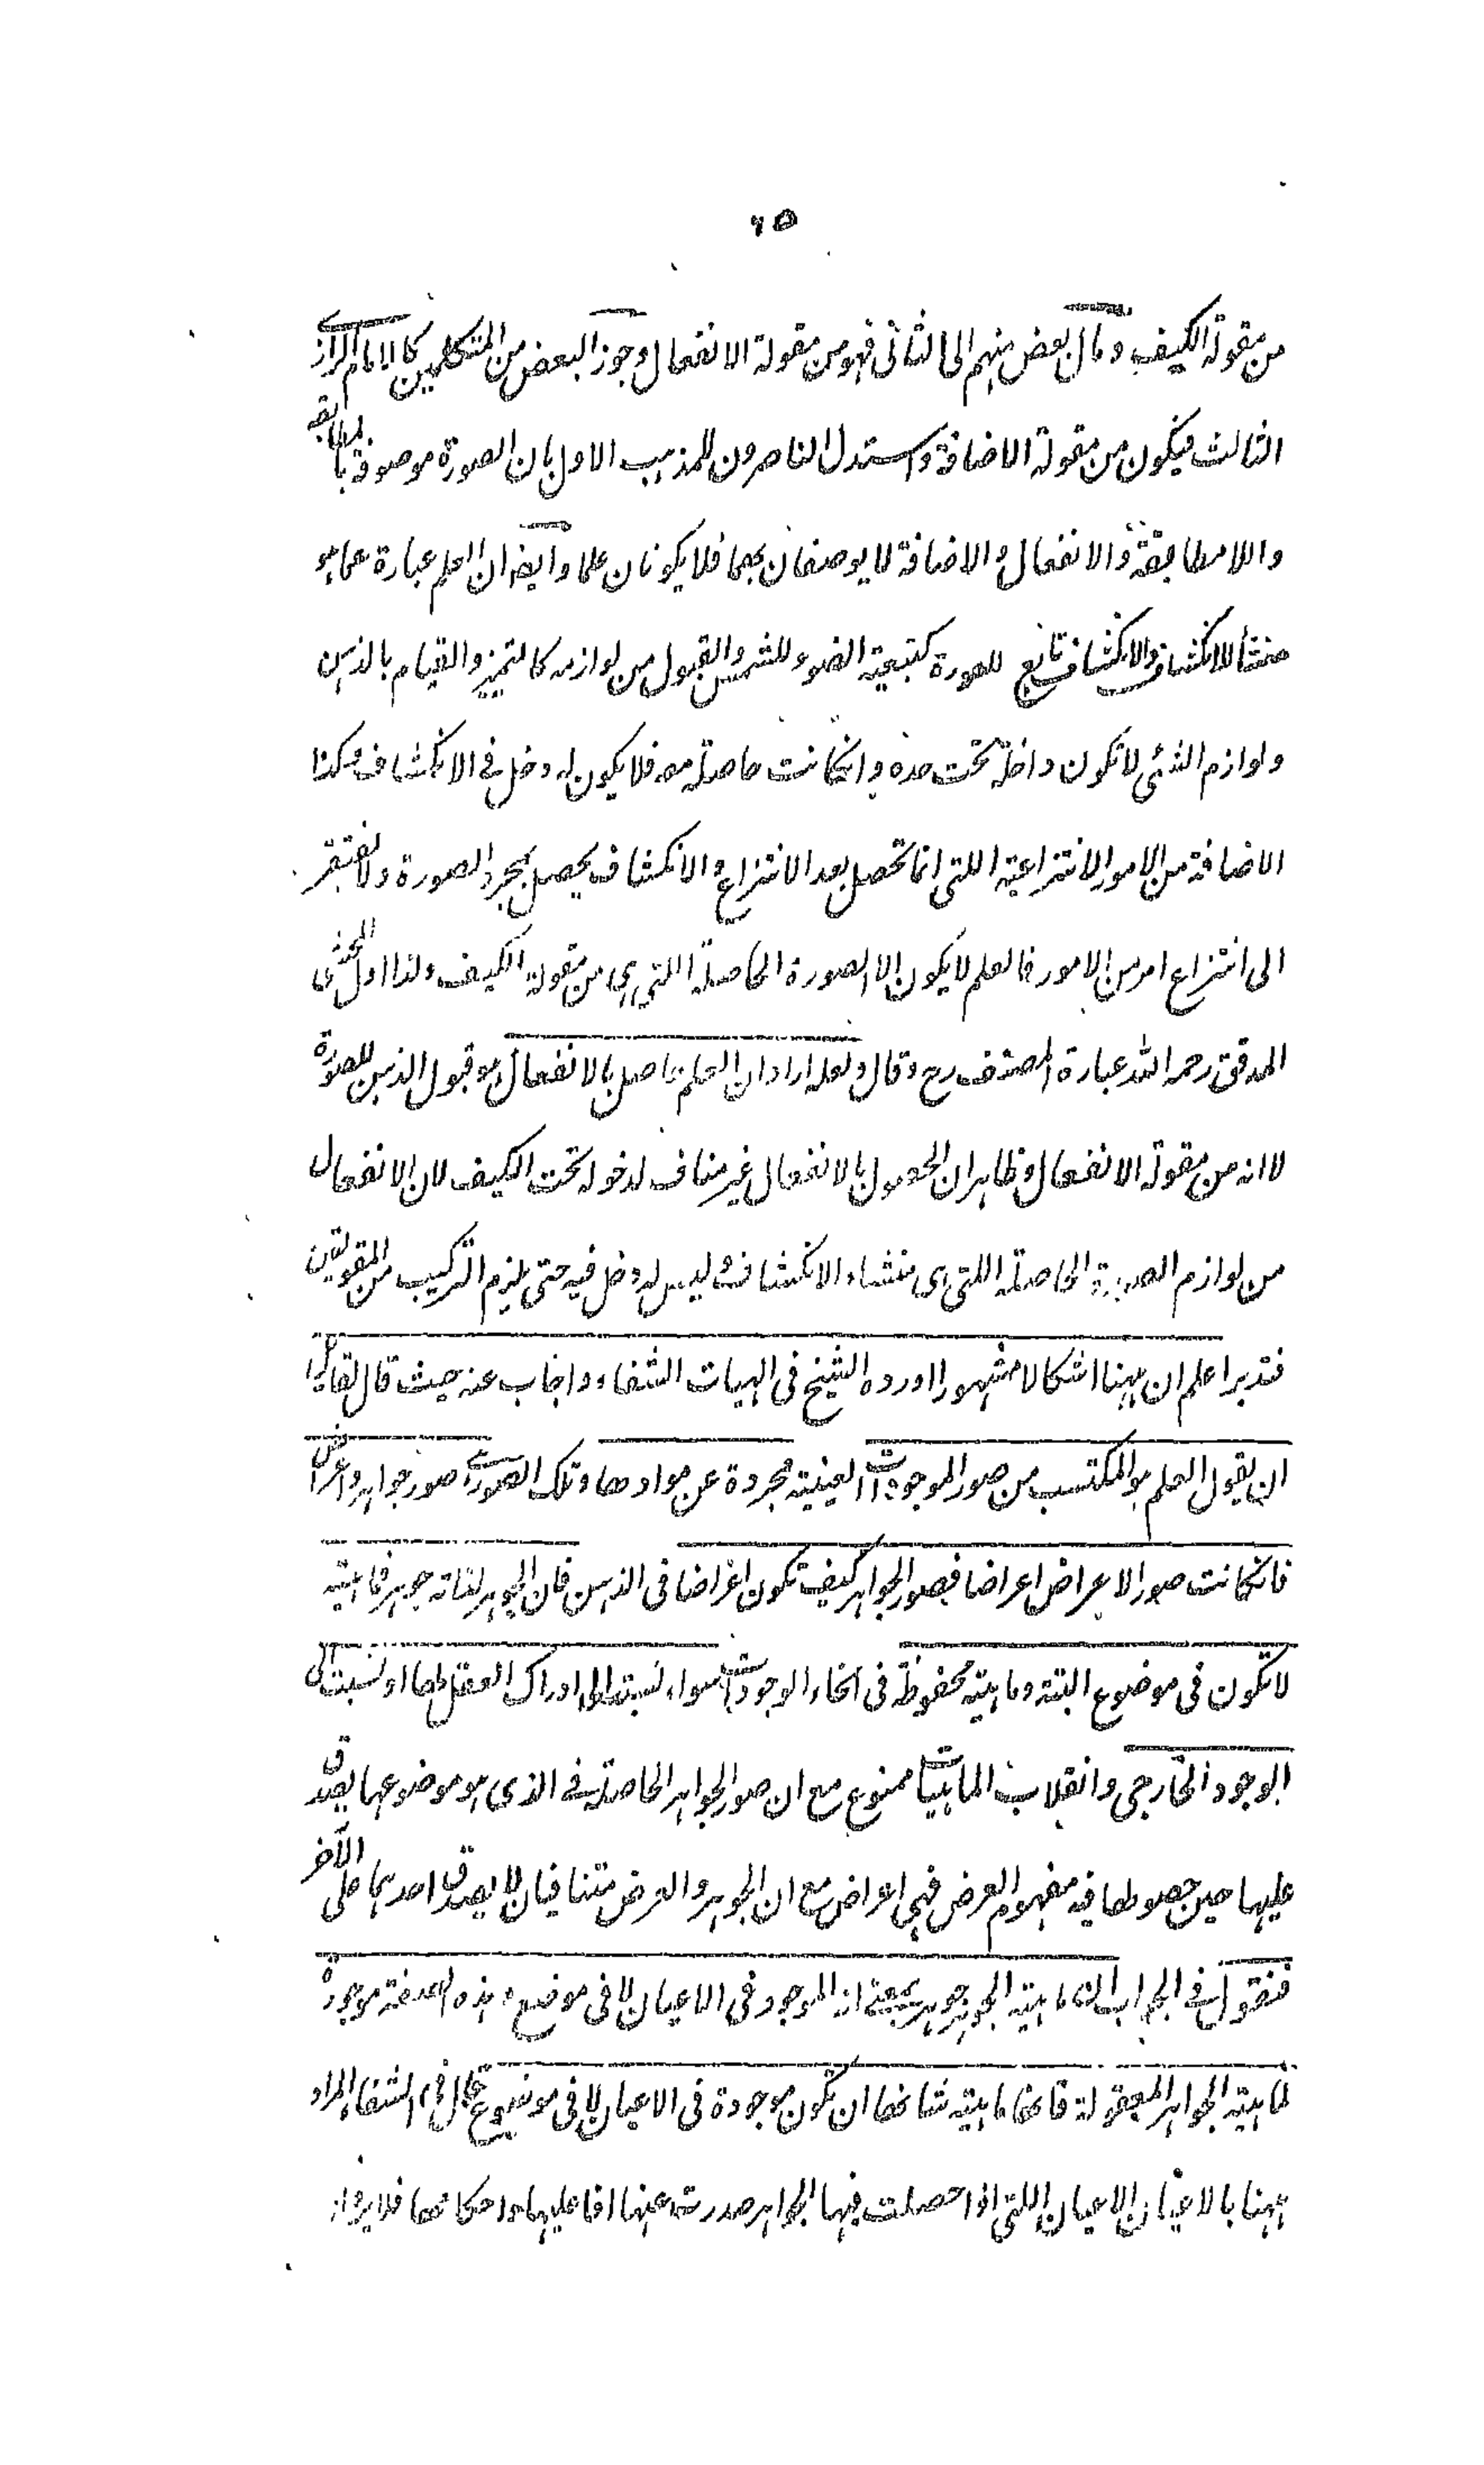 ٦٥
من مقولة الكيف ومال بعض منهم الى الثانى فهو من مقولة الانفعال وجوز البعض من المتكلمين كالامام الرازى
الثالث فيكون من مقولة الاضافة واستدل الناصرون للمذهب الاول بان الصورة موصوفة بالمطابقة
واللا مطابقة والانفعال والاضافة لا يوصفان بهما فلا يكونان علما وايضا ان العلم عبارة عما هو
منشأ للانكشاف والانكشاف تابع للصورة كتبعية الضوء للشمس والقبول من لوازمه كالتميز والقيام بالذهن
ولوازم الشئى لا تكون داخلة تحت حده وانكانت حاصلة معه فلا يكون له دخل فى الانكشاف وكذا
الاضافة من الامور الانتزاعية اللتى انما تحصل بعد الانتزاع والانكشاف يحصل بمجرد الصورة ولا يفتقر
الى انتزاع امر من الامور فالعلم لا يكون الا الصورة الحاصلة اللتى هى من مقولة الكيف ولذا اول المحشى
المدقق رحمه الله عبارة المصنف رح وقال ولعله اراد ان العلم حاصل بالانفعال وهو قبول الذهن للصورة
لا انه من مقولة الانفعال وظاهر ان الحصول بالانفعال غير مناف لدخوله تحت الكيف لان الانفعال
من لوازم الصورة الحاصلة اللتى هى منشاء الانكشاف وليس له دخل فيه حتى يلزم التركيب من المقولتين
فتدبر اعلم ان ههنا اشكالا مشهورا اورده الشيخ فى الهيات الشفاء واجاب عنه حيث قال لقائل
ان يقول العلم هو المكتسب من صور الموجودات العينية مجردة عن موادها وتلك الصور صور جواهر واعراض
فانكانت صور الاعراض اعراضا فصور الجواهر كيف تكون اعراضا فى الذهن فان الجوهر لذاته جوهر فماهيته
لا تكون فى موضوع البتة وماهيته محفوظة فى انحاء الوجودات سواء نسبت الى ادراك العقل لها او نسبت الى
الوجود الخارجى وانقلاب الماهيات ممنوع مع ان صور الجواهر الحاصلة فى الذى هو موضوعها يصدق
عليها حين حصولها فيه مفهوم العرض فهى اعراض مع ان الجوهر والعرض متنافيان لا يصدق احدهما على الآخر
فنقول فى الجواب ان ماهية الجوهر جوهر بمعنى انه الموجود فى الاعيان لا فى موضوع وهذه الصفة موجودة
لماهية الجواهر المعقولة فانها ماهية شانها ان تكون موجودة فى الاعيان لا فى موضوع قال فى الشفاء المراد
ههنا بالاعيان الاعيان اللتى اذا حصلت فيها الجواهر صدرت عنها افاعليها واحكامها فلا يرد